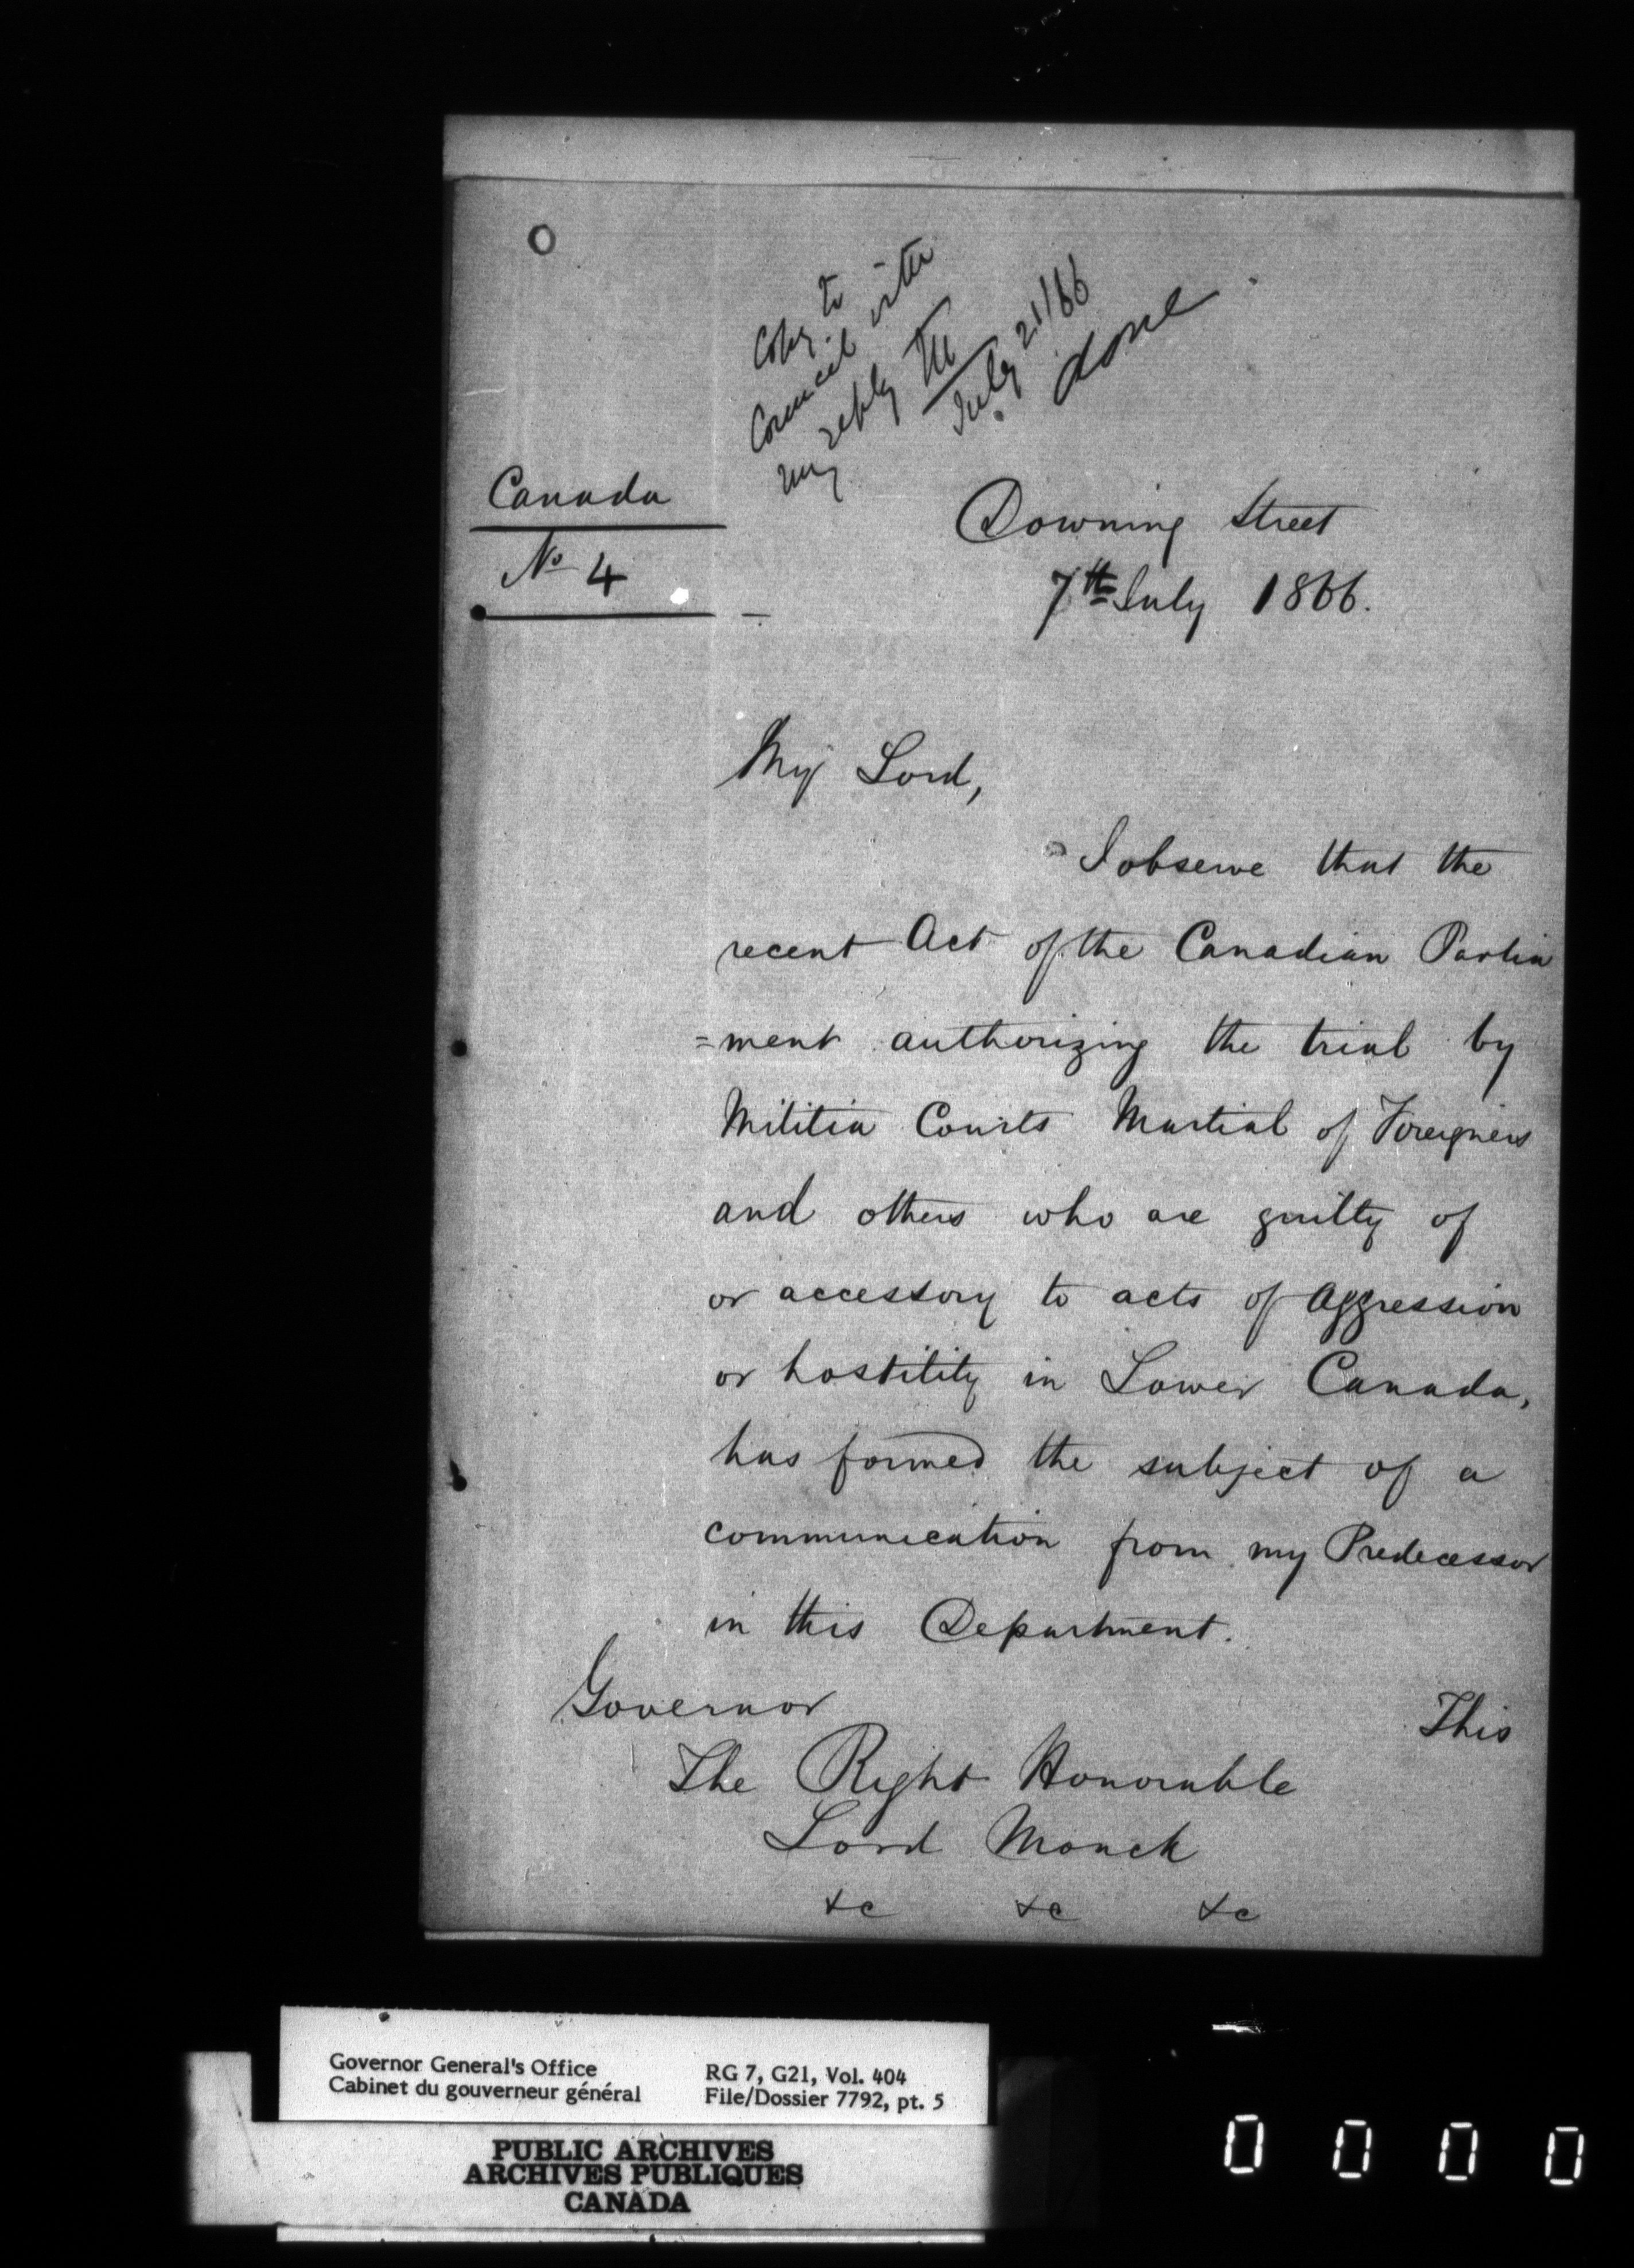 Copy to
Council with
my reply M
July 21/66
done
Canada
No 4
Downing Street
7th July 1866.
My Lord,
I observe that the
recent Act of the Canadian Parlia
=ment authorizing the trial by
Militia Courts Martial of Foreigners
and others who are guilty of
or accessory to acts of Aggression
or hostility in Lower Canada,
has formed the subject of a
communication from my Predecessor
in this Department.
This
Governor
The Right Honorable
Lord Monck
&c &c &c
Governor General's Office
Cabinet du gouverneur général
RG 7, G21, Vol. 404
File/Dossier 7792, pt. 5
PUBLIC ARCHIVES
ARCHIVES PUBLIQUES
CANADA
0 0 0 0